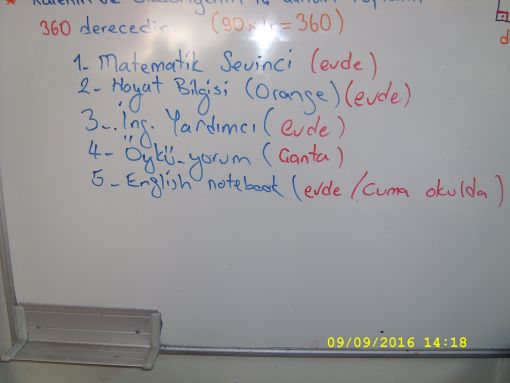 360 derecedir. (90 x 4 = 360)
1- Matematik Sevinci (evde)
2- Hayat Bilgisi (Orange) (evde)
3- İng. Yardımcı (evde)
4- Öykü-yorum (Çanta)
5- English notebook (evde / Cuma okulda)
09/09/2016 14:18